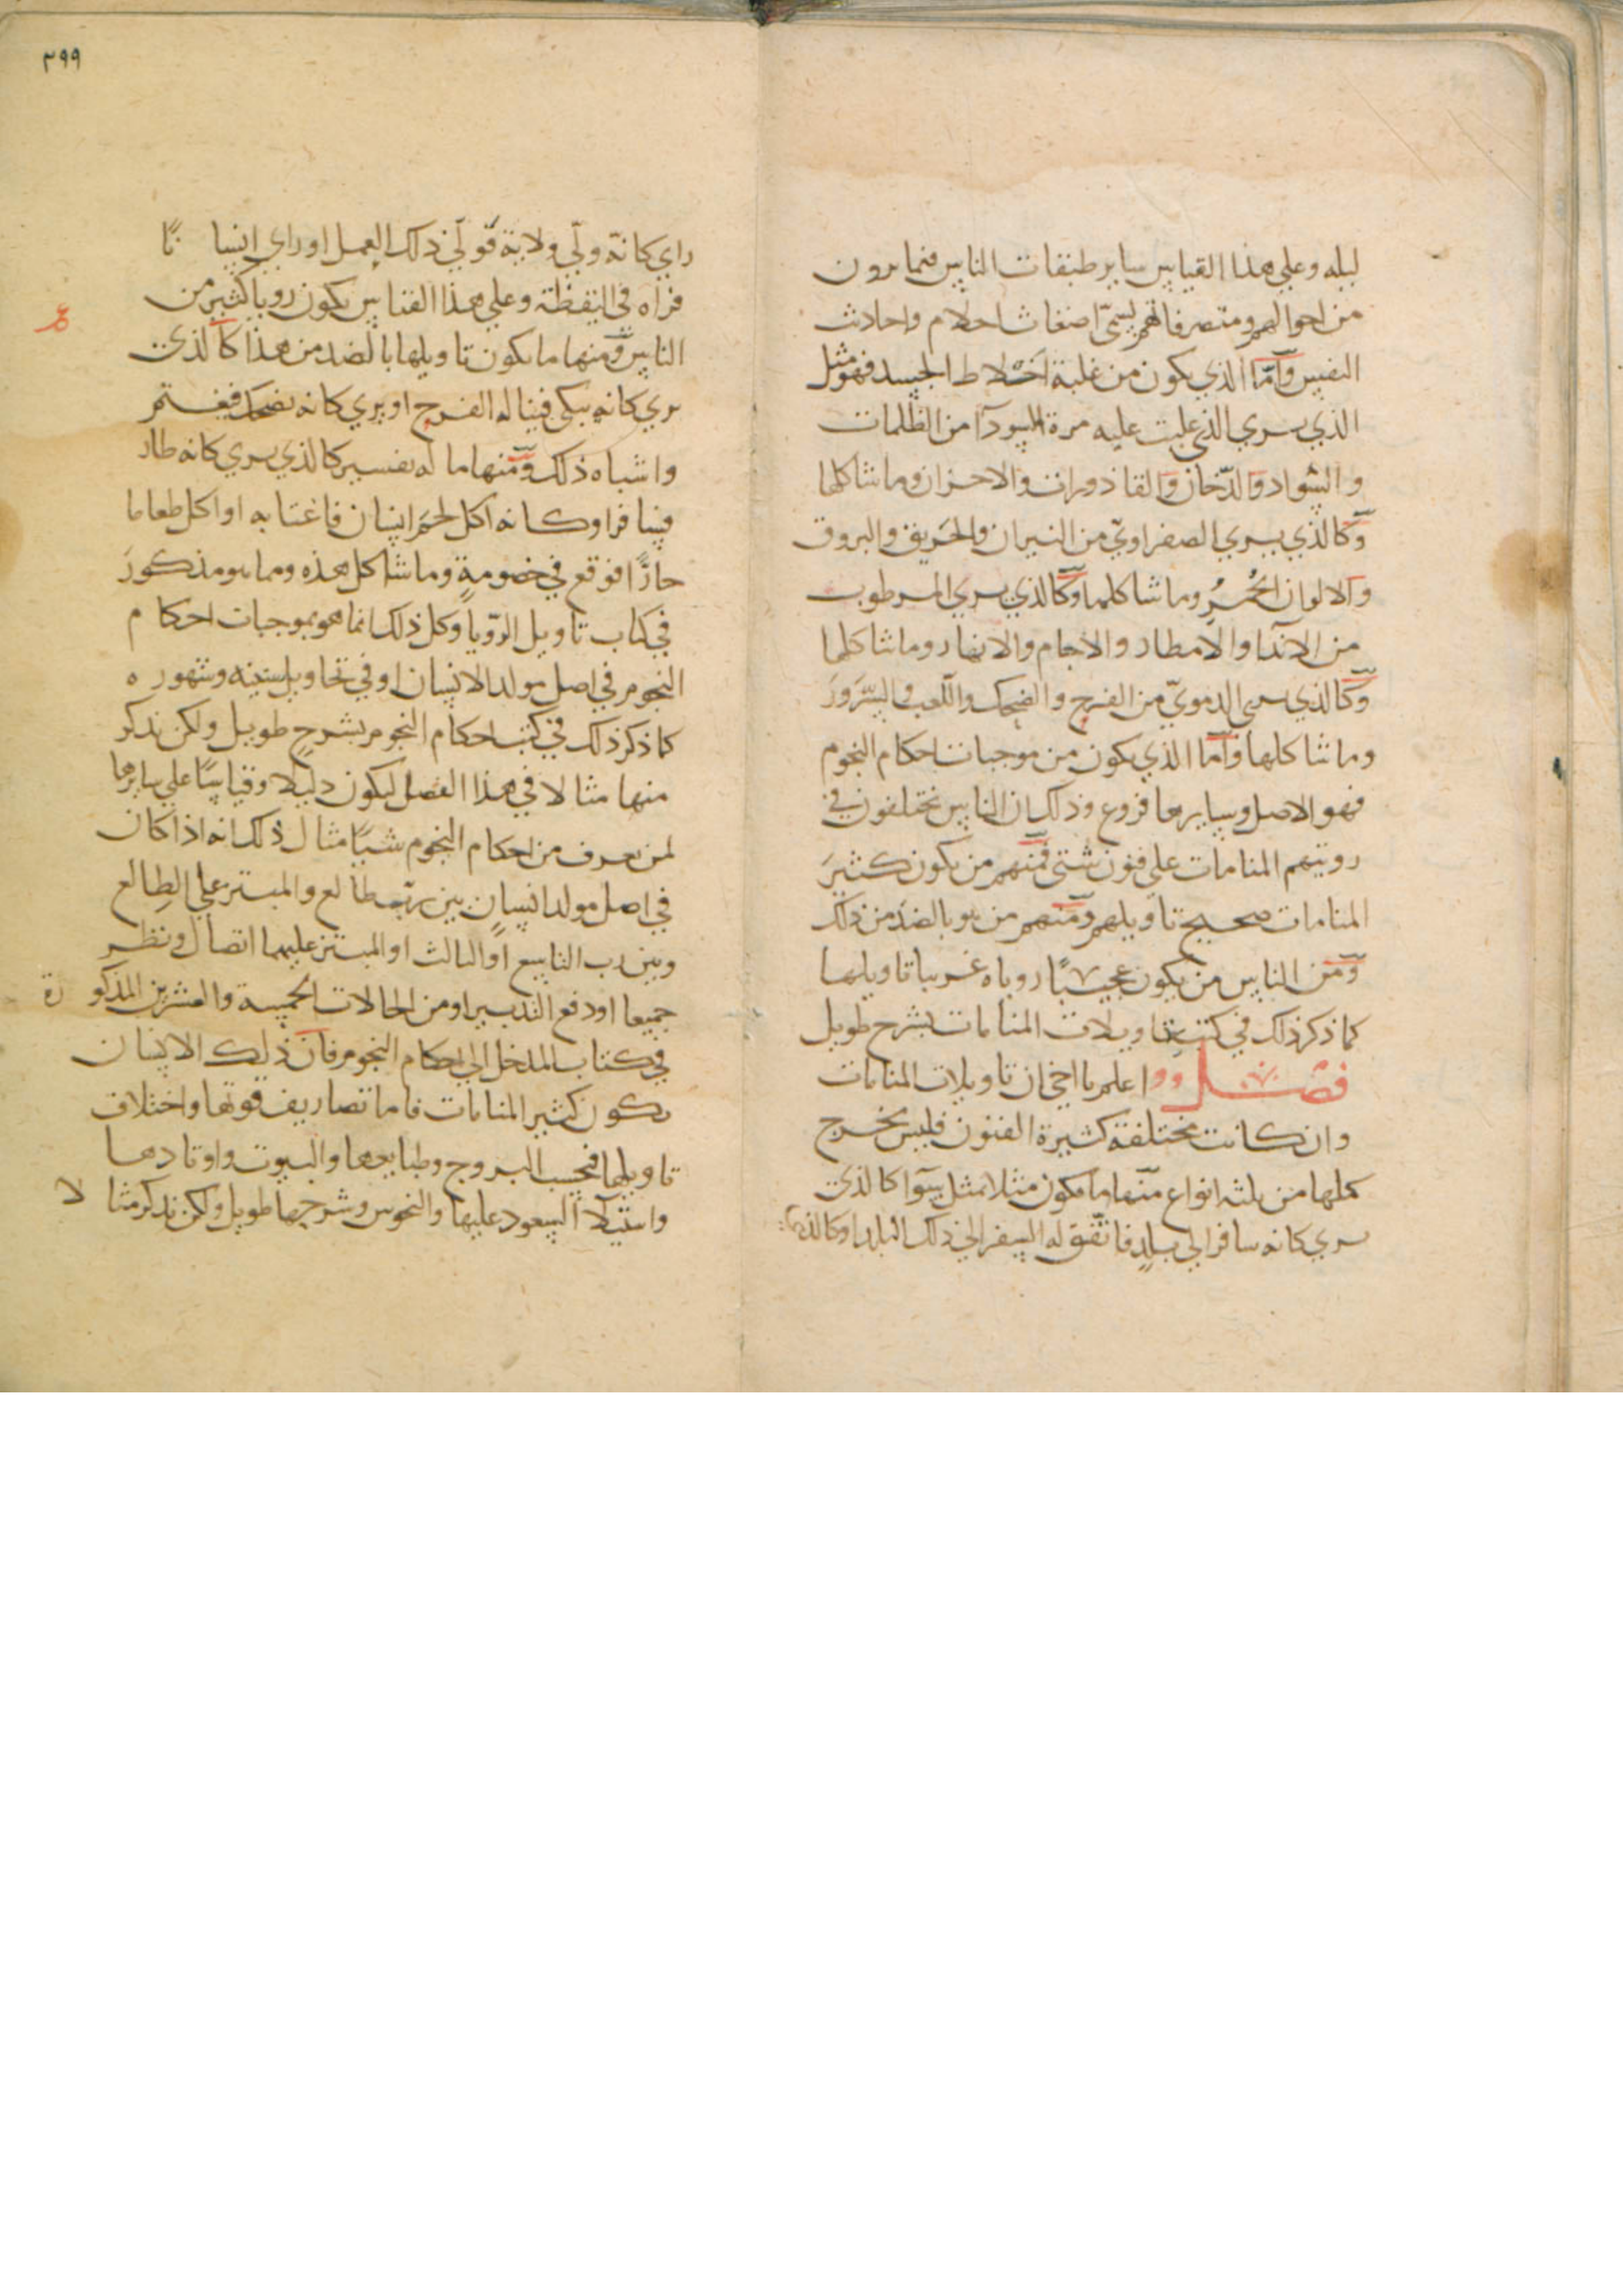 ليله وعلي هذا القياس ساير طبقات الناس فيما يرون
من احوالهم ومتصرفاتهم يسمّي اضغاث احلام واحاديث
النفس وامّا الذي يكون من غلبة اخلاط الجسد فهو مثل
الذي يري الذي غلبت عليه مرة السودآ من الظلمات
والسواد والدّخان والقاذورات والاحزان وما شاكلها
وكالذي يري الصفراويّ من النيران والحريق والبروق
والالوان الحُمرِ وما شاكلها وكالذي يري المرطوب
من الاندآ والامطار والاجام والانهار وما شاكلها
وكالذي يري الدمويّ من الفرح والضحك واللعب والسّرورَ
وما شاكلها وامّا الذي يكون من موجبات احكام النجوم
فهو الاصل وسايرها فروع وذلك ان الناس تختلفون في
رويتهم المنامات علي فنون شتي فمنهم من يكون كثيرَ
المنامات صحيح تاويلهم ومنهم من هو بالضد من ذلك
ومن الناس من يكون عجيبًا روياه غريبا تاويلها
كما ذكر ذلك في كتب تاويلات المنامات بشرح طويل
فصل اعلم يا اخي ان تاويلات المنامات
وان كانت مختلفة كثيرة الفنون فليس يخرج
كلها من ثلثه انواع منها ما يكون مثلا بمثل سوآ كالذي
يري كانه سافر الي بلدٍ فاتّفق له السفر الي ذلك البلد او كالذي
٣٩٩
راي كانّه ولّي ولاية فولّي ذلك العمل او راي انسانًا
فراه في اليقظة وعلي هذا القياس يكون رويا كثير من
الناس ومنها ما يكون تاويلها بالضد من هذا كالذي
يري كانه يبكي فيناله الفرح او يري كانه يضحك فيغتم
واشباه ذلك ومنها ما له تفسير كالذي يري كانه طار
فسافر او كانه اكل لحم انسان فاغتابه او اكل طعاما
حارًّا فوقع في خصومةٍ وما شاكل هذه ومما هو مذكورَ
في كتاب تاويل الرّويا وكل ذلك انما هو بموجبات احكام
النجوم في اصل مولد الانسان او في تحاويل سنيه وشهوره
كما ذكر ذلك في كتب احكام النجوم بشرح طويل ولكن نذكر
منها مثالا في هذا الفصل ليكون دليلا وقياسًا علي سايرها
لمن يعرف من احكام النجوم شيًا مثال ذلك انه اذا كان
في اصل مولد انسانٍ بين ربّ طالع والمبتز علي الطالع
وبين رب التاسع او الثالث او المبتز عليهما اتصال ونظر
جميعا او دفع التدبير او من الحالات الخمسة والعشرين المذكورة
في كتاب المدخل الي احكام النجوم فانّ ذلك الانسان
يكون كثير المنامات فاما تصاريف فنونها واختلاف
تاويلها فبحسب البروج وطبايعها والبيوت واوتادها
واستيلآ السعود عليها والنحوس وشرحها طويل ولكن نذكر مثالا